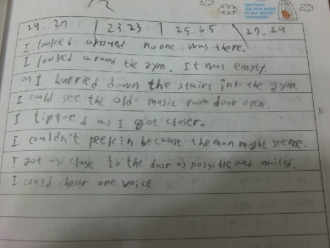 24.30 / 23.23 | 25.65 \ 27.29
I looked around no one was there.
I looked around the gym. It was empty
as I hurried down the stairs into the gym
I could see the old music room door open.
I tiptoed as I got closer.
I couldn't peek in because the man might see me.
I got as close to the door as possible and waited.
I could hear one voise